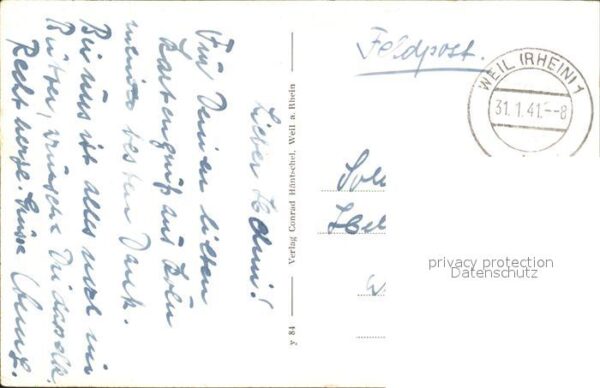 Feldpost.
WEIL (RHEIN) 1
31.1.41.--8
Lieber Helmi!
Für Deinen lieben
Kartengruß aus Köln
meinen besten Dank.
Bei uns ist alles noch im
wünsche Dir dasselbe.
Recht herzl. Grüsse
Verlag Conrad Häntschel, Weil a. Rhein
y 84
Sol
Hel
W
privacy protection
Datenschutz